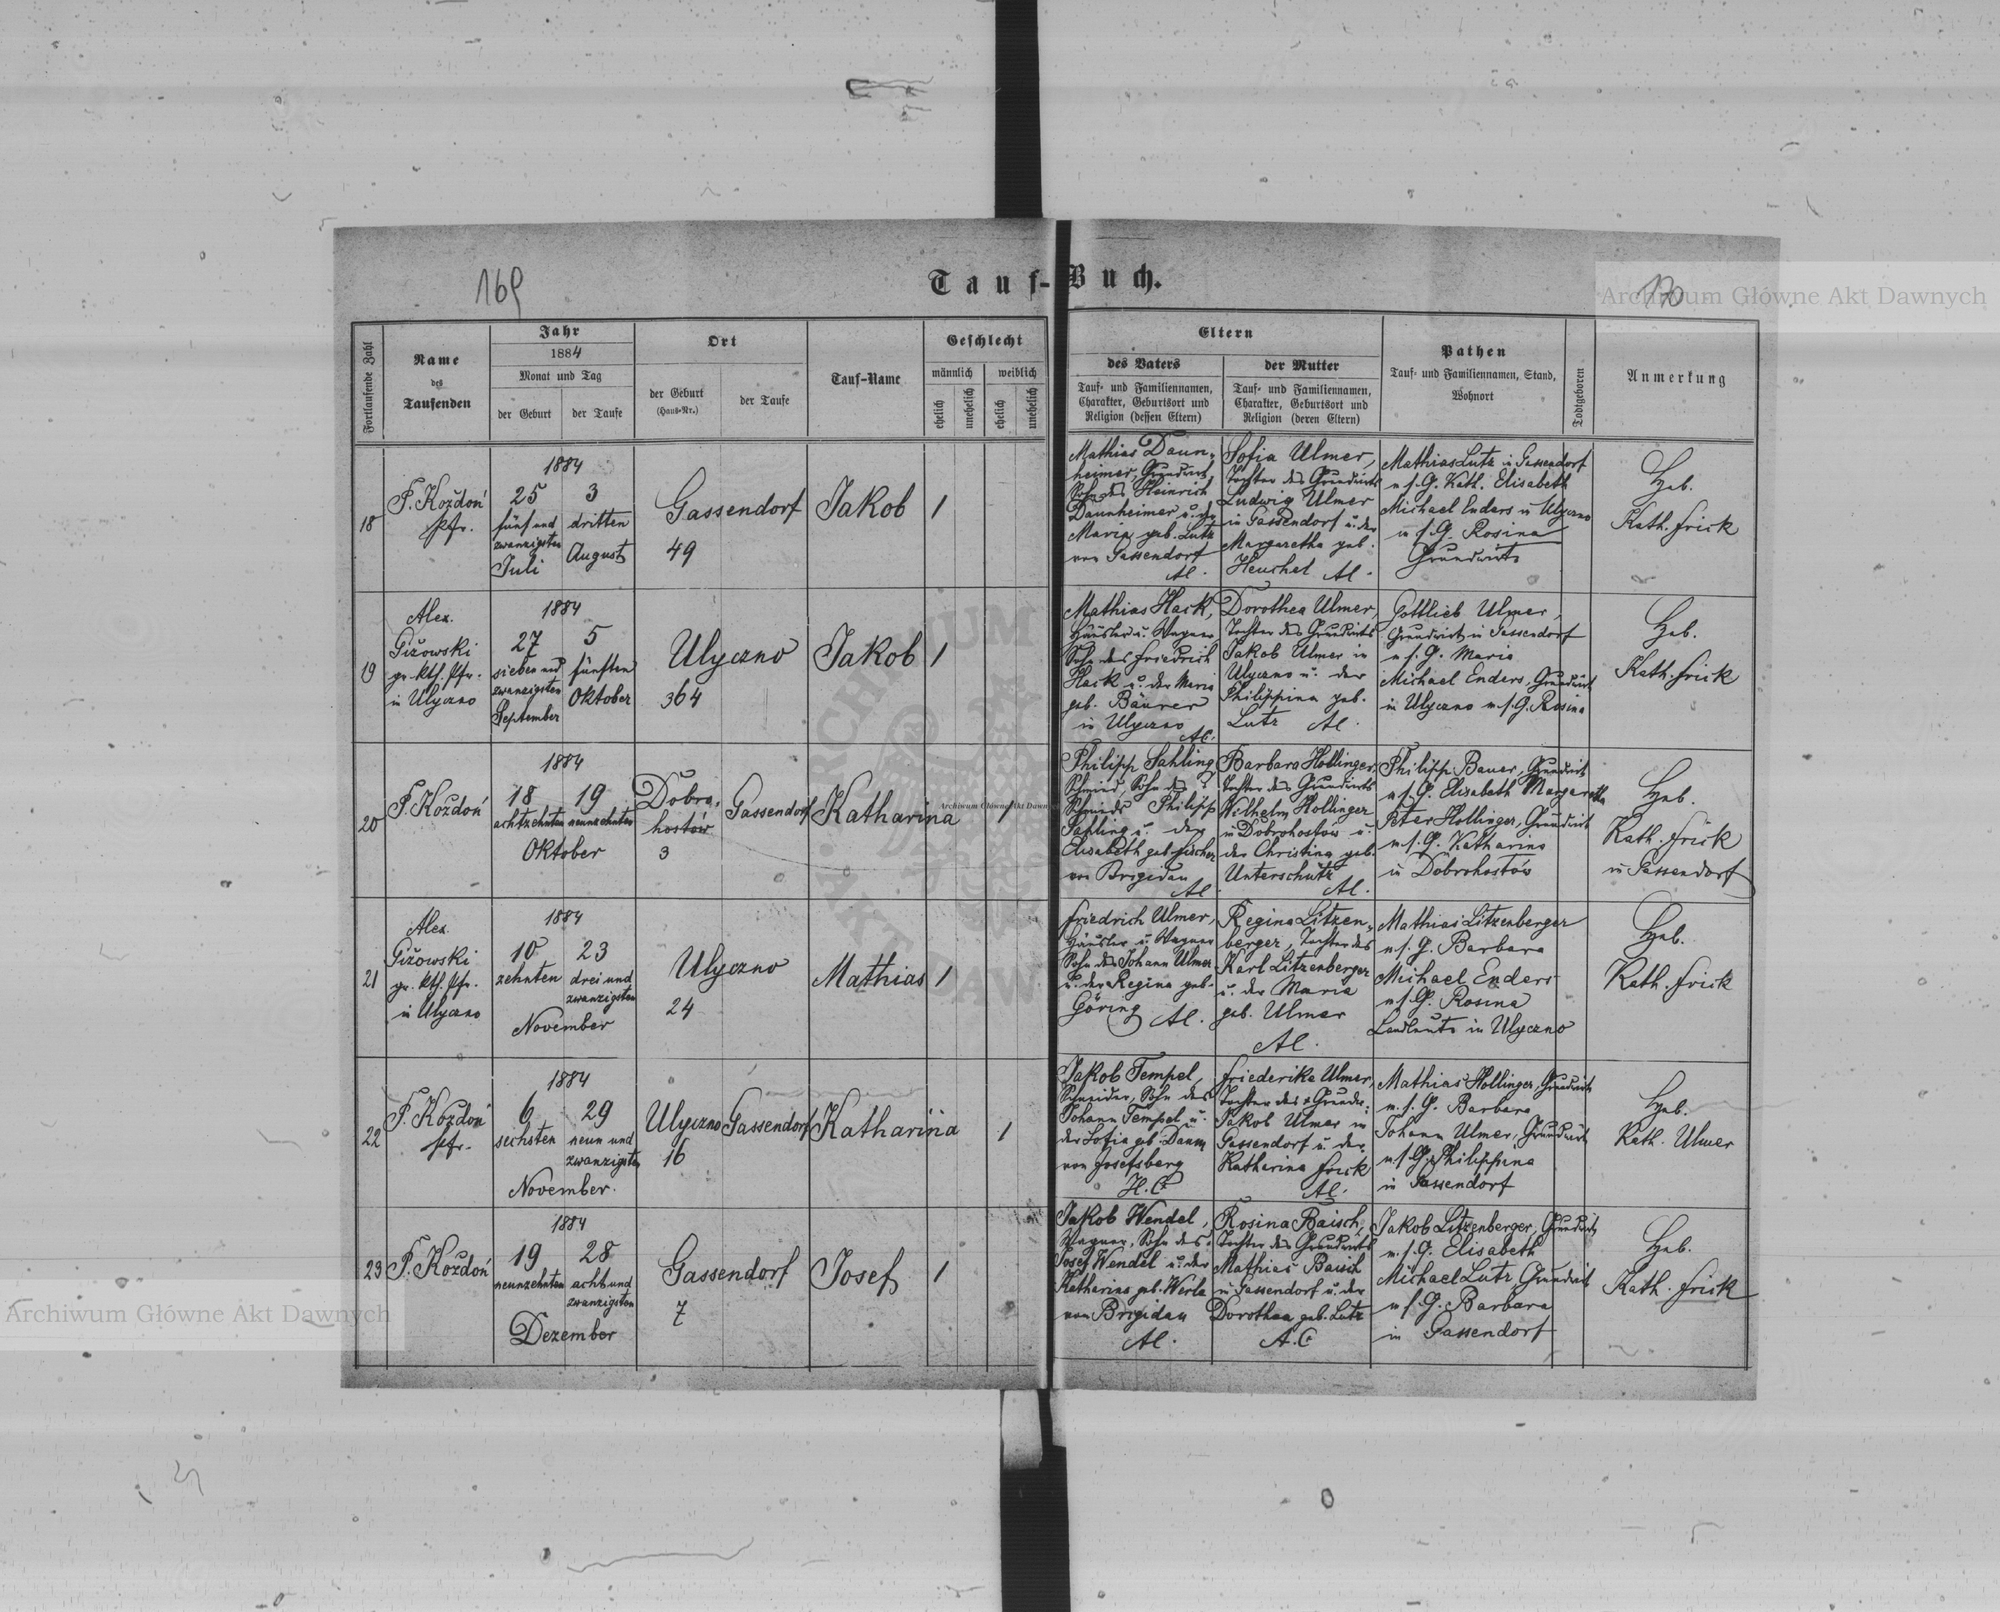 169
Tauf-Buch.
170
Archiwum Główne Akt Dawnych
Fortlaufende Zahl
Name
des
Taufenden
Jahr
1884
Monat und Tag
der Geburt
der Taufe
Ort
der Geburt
(Haus-Nr.)
der Taufe
Tauf-Name
Geschlecht
männlich
weiblich
ehelich
unehelich
ehelich
unehelich
Eltern
des Vaters
Tauf- und Familiennamen,
Charakter, Geburtsort und
Religion (dessen Eltern)
der Mutter
Tauf- und Familiennamen,
Charakter, Geburtsort und
Religion (deren Eltern)
Pathen
Tauf- und Familiennamen, Stand,
Wohnort
Todtgeboren
Anmerkung
18
F. Kozdoń
Pfr.
1884
25
fünf und
zwanzigsten
Juli
3
dritten
August
Gassendorf
49
Jakob
1
Mathias Daun-
heimer, Grundwirt
Sohn des Heinrich
Daunheimer u. der
Maria geb. Lutz
von Gassendorf
AC.
Sofia Ulmer,
Tochter des Grundwirts
Ludwig Ulmer
in Gassendorf u. der
Margaretha geb.
Heuchel AC.
Mathias Lutz in Gassendorf
u. s. G. Kath. Elisabeth
Michael Enders in Ulyczno
u. s. G. Rosina
Grundwirte
Heb.
Kath. Frick
19
Alex.
Giżowski
gr. kth. Pfr.
in Ulyczno
1884
27
sieben und
zwanzigsten
September
5
fünften
Oktober
Ulyczno
364
Jakob
1
Mathias Hack,
Häusler u. Wagner
Sohn des Friedrich
Hack u. der Maria
geb. Bäurer
in Ulyczno
AC.
Dorothea Ulmer,
Tochter des Grundwirts
Jakob Ulmer in
Ulyczno u. der
Philippina geb.
Lutz AC.
Gottlieb Ulmer,
Grundwirt in Gassendorf
u. s. G. Maria
Michael Enders, Grundwirt
in Ulyczno u. s. G. Rosina
Heb.
Kath. Frick
20
F. Kozdoń
1884
18
achtzehnten
19
neunzehnten
Oktober
Dobro-
hostów
3
Gassendorf
Katharina
1
Philipp Sahling
Schmied, Sohn des
Schmieds Philipp
Sahling u. der
Elisabeth geb. Fischer
von Brigidau
AC
Barbara Hollinger,
Tochter des Grundwirts
Wilhelm Hollinger
in Dobrohostów u.
der Christina geb.
Unterschütz
AC.
Philipp Bauer, Grundwirt
u. s. G. Elisabeth Margaretha
Peter Hollinger, Grundwirt
u. s. G. Katharina
in Dobrohostów
Heb.
Kath. Frick
in Gassendorf
21
Alex.
Giżowski
gr. kth. Pfr.
in Ulyczno
1884
10
zehnten
23
drei und
zwanzigsten
November
Ulyczno
24
Mathias
1
Friedrich Ulmer,
Häusler u. Wagner
Sohn des Johann Ulmer
u. der Regina geb.
Göring AC.
Regina Litzen-
berger, Tochter des
Karl Litzenberger
u. der Maria
geb. Ulmer
AC.
Mathias Litzenberger
u. s. G. Barbara
Michael Enders
u. s. G. Rosina
Landleute in Ulyczno
Heb.
Kath. Frick
22
F. Kozdoń
Pfr.
1884
6
sechsten
29
neun und
zwanzigsten
November.
Ulyczno
16
Gassendorf
Katharina
1
Jakob Tempel,
Schneider, Sohn des
Johann Tempel u.
der Sofia geb. Daum
von Josefsberg
H.C
Friederike Ulmer,
Tochter des Grundw.
Jakob Ulmer in
Gassendorf u. der
Katharina Frick
AC.
Mathias Hollinger, Grundwirt
u. s. G. Barbara
Johann Ulmer, Grundwirt
u. s. G. Philippina
in Gassendorf
Heb.
Kath. Ulmer
23
F. Kozdoń
1884
19
neunzehnten
28
acht und
zwanzigsten
Dezember
Gassendorf
7
Josef
1
Jakob Wendel,
Wagner, Sohn des
Josef Wendel u. der
Katharina geb. Werle
von Brigidau
AC.
Rosina Baisch,
Tochter des Grundwirts
Mathias Baisch
in Gassendorf u. der
Dorothea geb. Lutz
A.C
Jakob Litzenberger, Grundwirt
u. s. G. Elisabeth
Michael Lutz, Grundwirt
u. s. G. Barbara
in Gassendorf
Heb.
Kath. Frick
Archiwum Główne Akt Dawnych
Archiwum Główne Akt Dawnych
ARCHIWUM
AKT DAW